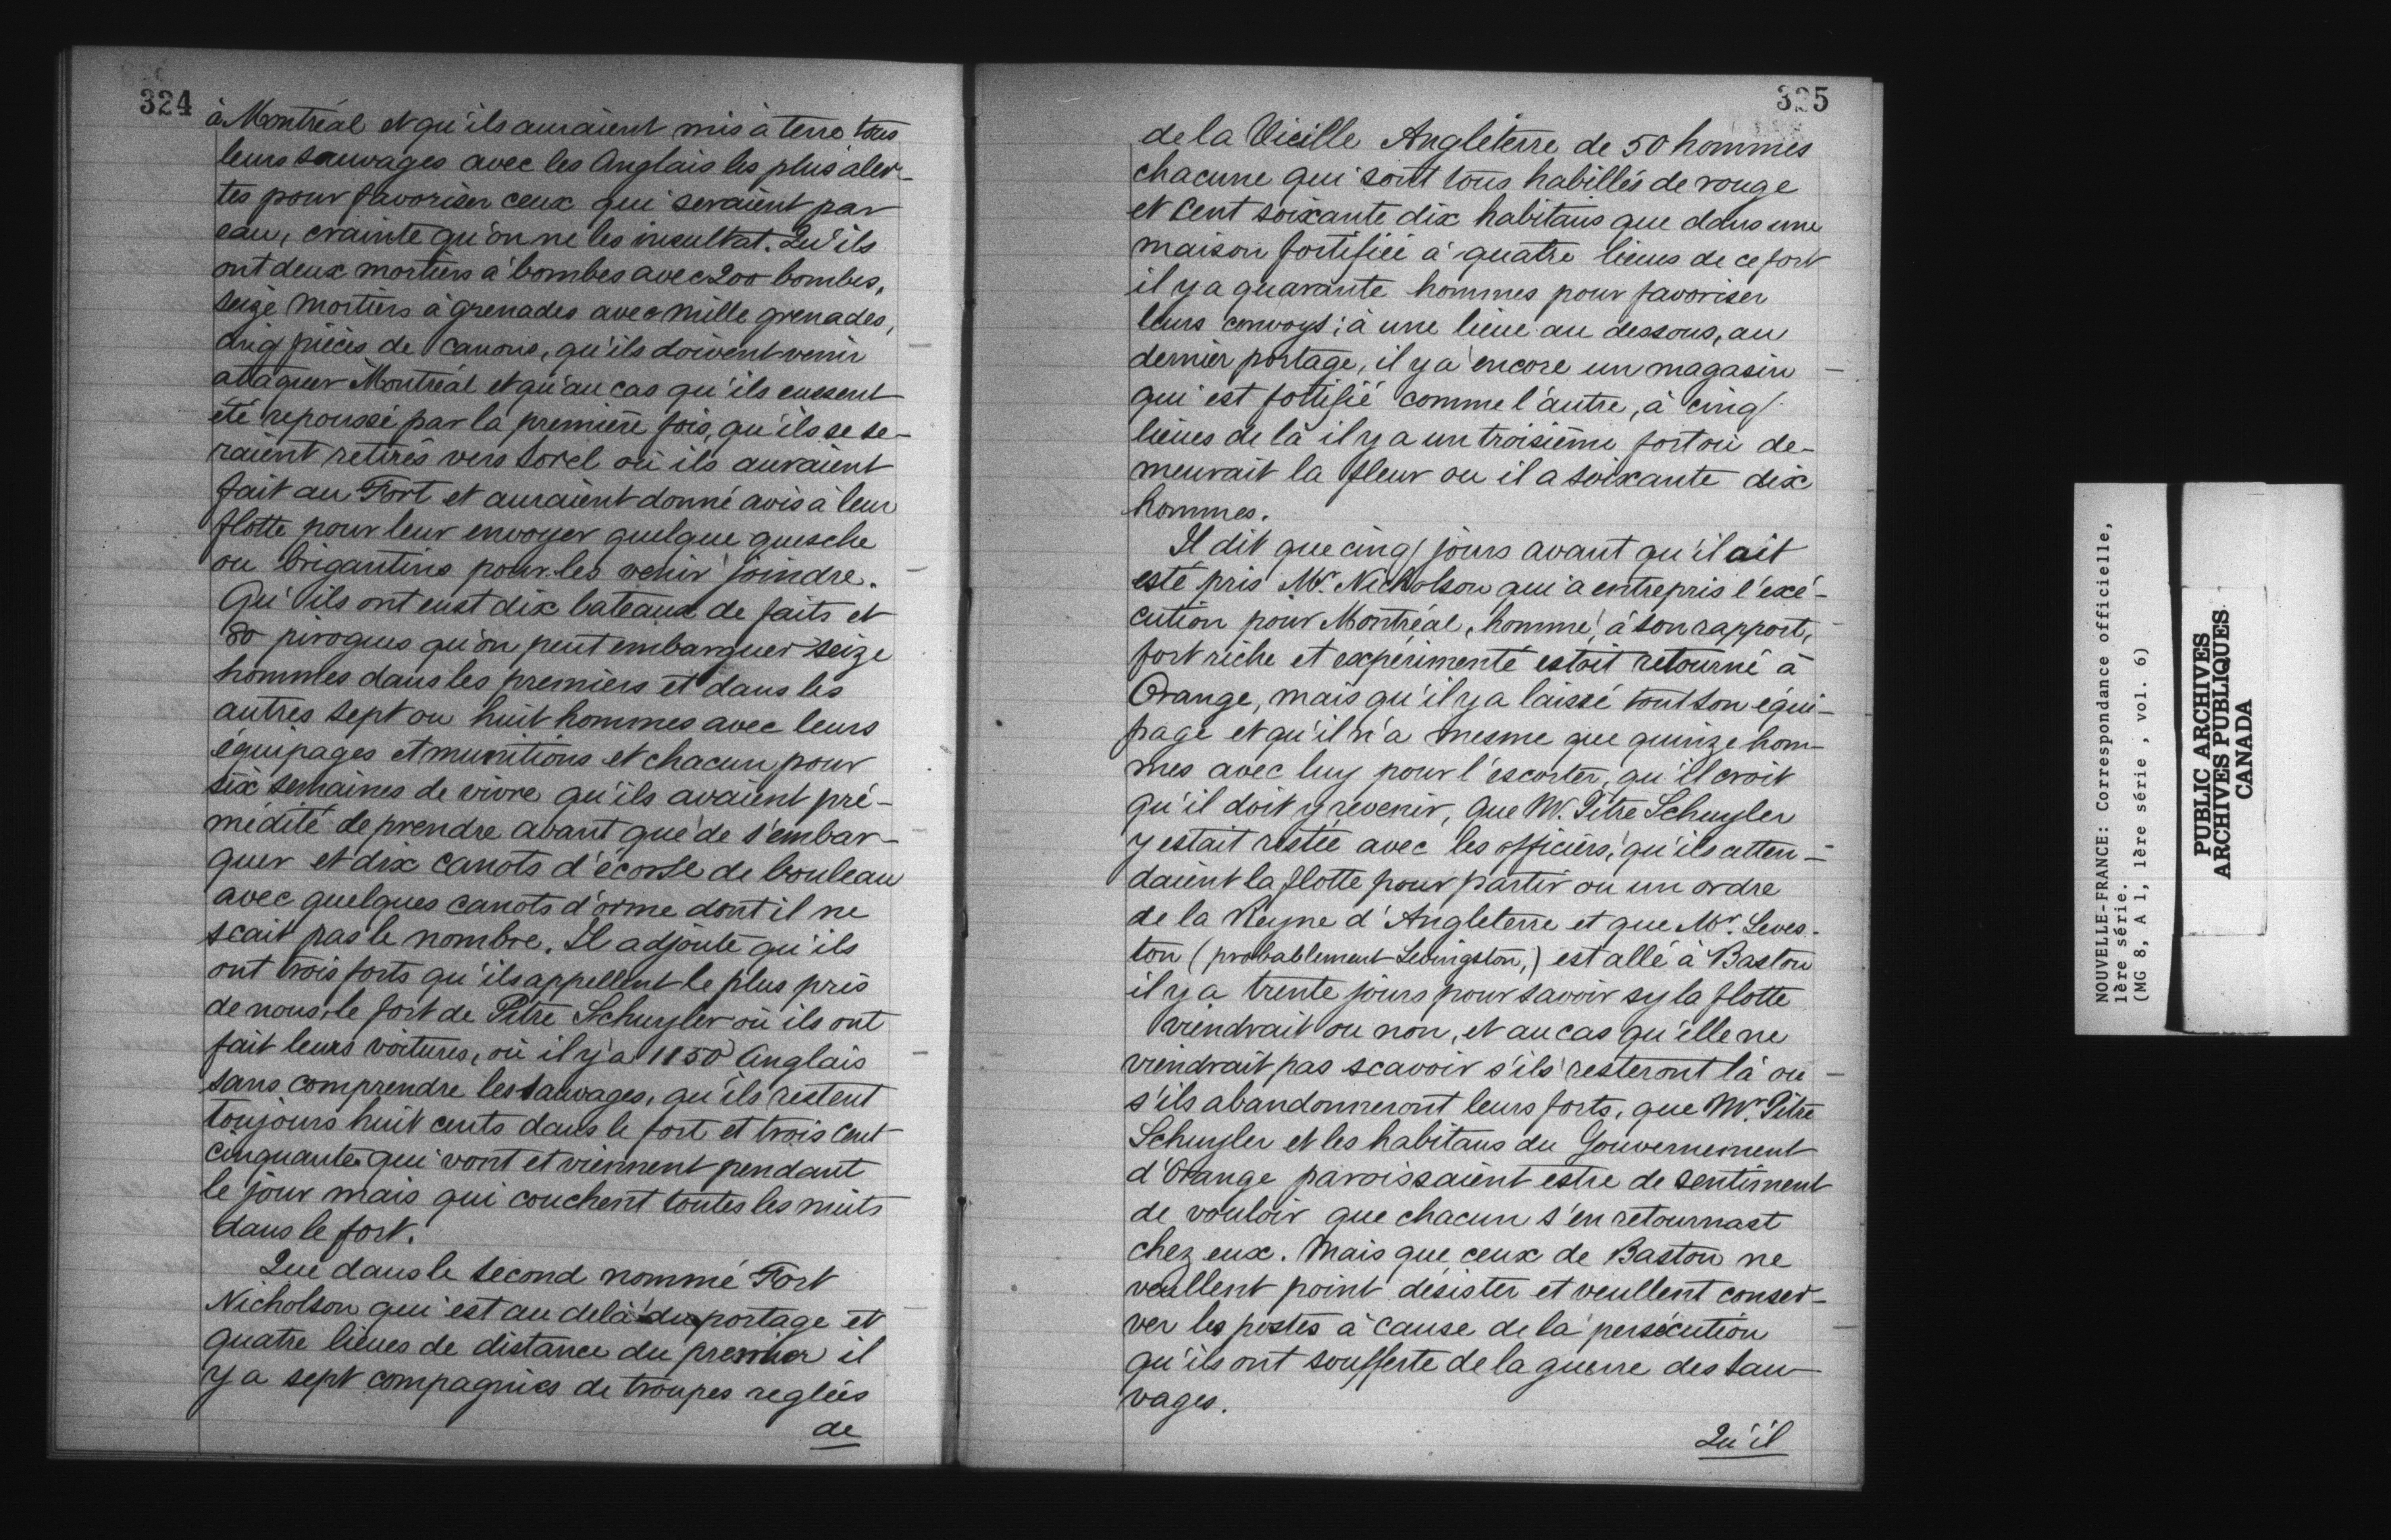 324
à Montréal et qu'ils auraient mis à terre tous
leurs sauvages avec les Anglais les plus aler-
tes pour favoriser ceux qui seraient par
eau, crainte qu'on ne les insultat. Qu'ils
ont deux mortiers à bombes avec 200 bombes,
seize mortiers à grenades avec mille grenades,
cinq pièces de canons, qu'ils doivent venir
attaquer Montréal et qu'au cas qu'ils eussent
été repoussé par la première fois, qu'ils se se-
raient retirés vers Sorel où ils auraient
fait au Fort et auraient donné avis à leur
flotte pour leur envoyer quelque quesche
ou brigantins pour les venir joindre.
Qu'ils ont eust dix bateaux de faits et
80 pirogues qu'on peut embarquer seize
hommes dans les premiers et dans les
autres sept ou huit hommes avec leurs
équipages et munitions et chacun pour
six semaines de vivre qu'ils avaient pré-
médité de prendre avant que de s'embar-
quer et dix canots d'écorse de bouleau
avec quelques canots d'orme dont il ne
scait pas le nombre. Il adjoute qu'ils
ont trois forts qu'ils appellent le plus près
de nous, le fort de Pitre Schuyler où ils ont
fait leurs voitures, où il y a 1150 Anglais
sans comprendre les sauvages, qu'ils restent
toujours huit cents dans le fort et trois cent
cinquante qui vont et viennent pendant
le jour mais qui couchent toutes les nuits
dans le fort.
Que dans le second nommé Fort
Nicholson qui est au delà du portage et
quatre lieues de distance du premier il
y a sept compagnies de troupes reglées
de
325
de la Vieille Angleterre de 50 hommes
chacune qui sont tous habillés de rouge
et cent soixante dix habitans que dans une
maison fortifiée à quatre lieues de ce fort
il y a quarante hommes pour favoriser
leurs convoys; à une lieue au dessous, au
dernier portage, il y a encore un magasin
qui est fortifié comme l'autre, à cinq
lieues de là il y a un troisième fort où de-
meurait la fleur ou il a soixante dix
hommes.
Il dit que cinq jours avant qu'il ait
esté pris Mr. Nicholson qui a entrepris l'exé-
cution pour Montréal, homme, à son rapport,
fort riche et expérimenté estoit retourné à
Orange, mais qu'il y a laissé tout son équi-
page et qu'il n'a mesme que quinze hom-
mes avec luy pour l'escorter, qu'il croit
qu'il doit y revenir, que M. Pitre Schuyler
y estait restée avec les officiers, qu'ils atten-
daient la flotte pour partir ou un ordre
de la Reyne d'Angleterre et que Mr. Leves-
ton (probablement Levingston,) est allé à Baston
il y a trente jours pour savoir sy la flotte
viendrait ou non, et au cas qu'elle ne
viendrait pas scavoir s'ils resteront là ou
s'ils abandonneront leurs forts, que Mr. Pitre
Schuyler et les habitans du Gouvernement
d'Orange paroissaient estre de sentiment
de vouloir que chacun s'en retournast
chez eux. Mais que ceux de Baston ne
veullent point désister et veullent conser-
ver les postes à cause de la persécution
qu'ils ont soufferte de la guerre des sau-
vages.
Qu'il
NOUVELLE-FRANCE: Correspondance officielle,
1ère série.
(MG 8, A 1, 1ère série , vol. 6)
PUBLIC ARCHIVES
ARCHIVES PUBLIQUES
CANADA